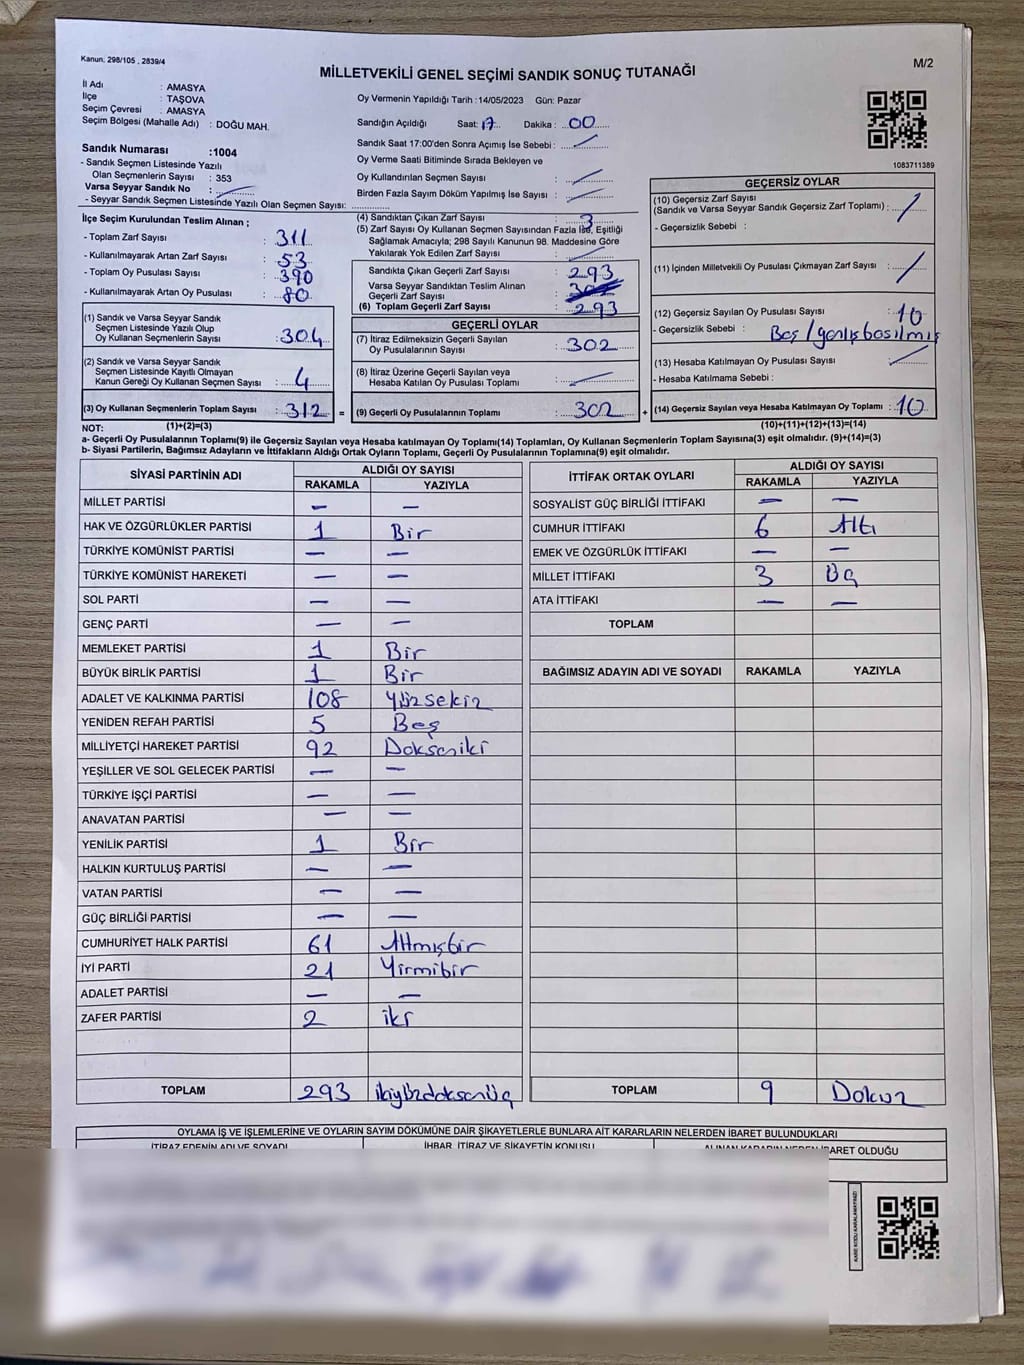 Kanun: 298/105 , 2839/4
M/2
MİLLETVEKİLİ GENEL SEÇİMİ SANDIK SONUÇ TUTANAĞI
İl Adı : AMASYA
İlçe : TAŞOVA
Seçim Çevresi : AMASYA
Seçim Bölgesi (Mahalle Adı) : DOĞU MAH.
Sandık Numarası :1004
- Sandık Seçmen Listesinde Yazılı
Olan Seçmenlerin Sayısı : 353
Varsa Seyyar Sandık No :
- Seyyar Sandık Seçmen Listesinde Yazılı Olan Seçmen Sayısı:
Oy Vermenin Yapıldığı Tarih : 14/05/2023 Gün: Pazar
Sandığın Açıldığı Saat: 17 Dakika : 00
Sandık Saat 17:00'den Sonra Açılmış İse Sebebi :
Oy Verme Saati Bitiminde Sırada Bekleyen ve
Oy Kullandırılan Seçmen Sayısı :
Birden Fazla Sayım Döküm Yapılmış İse Sayısı :
1083711389
İlçe Seçim Kurulundan Teslim Alınan ;
- Toplam Zarf Sayısı : 311
- Kullanılmayarak Artan Zarf Sayısı : 53
- Toplam Oy Pusulası Sayısı : 390
- Kullanılmayarak Artan Oy Pusulası : 80
(1) Sandık ve Varsa Seyyar Sandık
Seçmen Listesinde Yazılı Olup
Oy Kullanan Seçmenlerin Sayısı : 304
(2) Sandık ve Varsa Seyyar Sandık
Seçmen Listesinde Kayıtlı Olmayan
Kanun Gereği Oy Kullanan Seçmen Sayısı : 4
(3) Oy Kullanan Seçmenlerin Toplam Sayısı : 312 =
(1)+(2)=(3)
(4) Sandıktan Çıkan Zarf Sayısı : 3
(5) Zarf Sayısı Oy Kullanan Seçmen Sayısından Fazla İse, Eşitliği
Sağlamak Amacıyla; 298 Sayılı Kanunun 98. Maddesine Göre
Yakılarak Yok Edilen Zarf Sayısı :
Sandıkta Çıkan Geçerli Zarf Sayısı : 293
Varsa Seyyar Sandıktan Teslim Alınan
Geçerli Zarf Sayısı :
(6) Toplam Geçerli Zarf Sayısı : 293
GEÇERLİ OYLAR
(7) İtiraz Edilmeksizin Geçerli Sayılan
Oy Pusulalarının Sayısı : 302
(8) İtiraz Üzerine Geçerli Sayılan veya
Hesaba Katılan Oy Pusulası Toplamı :
(9) Geçerli Oy Pusulalarının Toplamı : 302 +
GEÇERSİZ OYLAR
(10) Geçersiz Zarf Sayısı
(Sandık ve Varsa Seyyar Sandık Geçersiz Zarf Toplamı) :
- Geçersizlik Sebebi :
(11) İçinden Milletvekili Oy Pusulası Çıkmayan Zarf Sayısı :
(12) Geçersiz Sayılan Oy Pusulası Sayısı : 10
- Geçersizlik Sebebi : Boş / yanlış basılmış
(13) Hesaba Katılmayan Oy Pusulası Sayısı :
- Hesaba Katılmama Sebebi :
(14) Geçersiz Sayılan veya Hesaba Katılmayan Oy Toplamı : 10
(10)+(11)+(12)+(13)=(14)
NOT:
a- Geçerli Oy Pusulalarının Toplamı(9) ile Geçersiz Sayılan veya Hesaba katılmayan Oy Toplamı(14) Toplamları, Oy Kullanan Seçmenlerin Toplam Sayısına(3) eşit olmalıdır. (9)+(14)=(3)
b- Siyasi Partilerin, Bağımsız Adayların ve İttifakların Aldığı Ortak Oyların Toplamı, Geçerli Oy Pusulalarının Toplamına(9) eşit olmalıdır.
SİYASİ PARTİNİN ADI ALDIĞI OY SAYISI
RAKAMLA YAZIYLA
MİLLET PARTİSİ — —
HAK VE ÖZGÜRLÜKLER PARTİSİ 1 Bir
TÜRKİYE KOMÜNİST PARTİSİ — —
TÜRKİYE KOMÜNİST HAREKETİ — —
SOL PARTİ — —
GENÇ PARTİ — —
MEMLEKET PARTİSİ 1 Bir
BÜYÜK BİRLİK PARTİSİ 1 Bir
ADALET VE KALKINMA PARTİSİ 108 Yüzsekiz
YENİDEN REFAH PARTİSİ 5 Beş
MİLLİYETÇİ HAREKET PARTİSİ 92 Doksaniki
YEŞİLLER VE SOL GELECEK PARTİSİ — —
TÜRKİYE İŞÇİ PARTİSİ — —
ANAVATAN PARTİSİ — —
YENİLİK PARTİSİ 1 Bir
HALKIN KURTULUŞ PARTİSİ — —
VATAN PARTİSİ — —
GÜÇ BİRLİĞİ PARTİSİ — —
CUMHURİYET HALK PARTİSİ 61 Altmışbir
İYİ PARTİ 21 Yirmibir
ADALET PARTİSİ — —
ZAFER PARTİSİ 2 iki
TOPLAM 293 ikiyüzdoksanüç
İTTİFAK ORTAK OYLARI ALDIĞI OY SAYISI
RAKAMLA YAZIYLA
SOSYALİST GÜÇ BİRLİĞİ İTTİFAKI — —
CUMHUR İTTİFAKI 6 Altı
EMEK VE ÖZGÜRLÜK İTTİFAKI — —
MİLLET İTTİFAKI 3 Üç
ATA İTTİFAKI — —
TOPLAM
BAĞIMSIZ ADAYIN ADI VE SOYADI RAKAMLA YAZIYLA
TOPLAM 9 Dokuz
OYLAMA İŞ VE İŞLEMLERİNE VE OYLARIN SAYIM DÖKÜMÜNE DAİR ŞİKAYETLERLE BUNLARA AİT KARARLARIN NELERDEN İBARET BULUNDUKLARI
İTİRAZ EDENİN ADI VE SOYADI İHBAR, İTİRAZ VE ŞİKAYETİN KONUSU ALINAN KARARIN NEDEN İBARET OLDUĞU